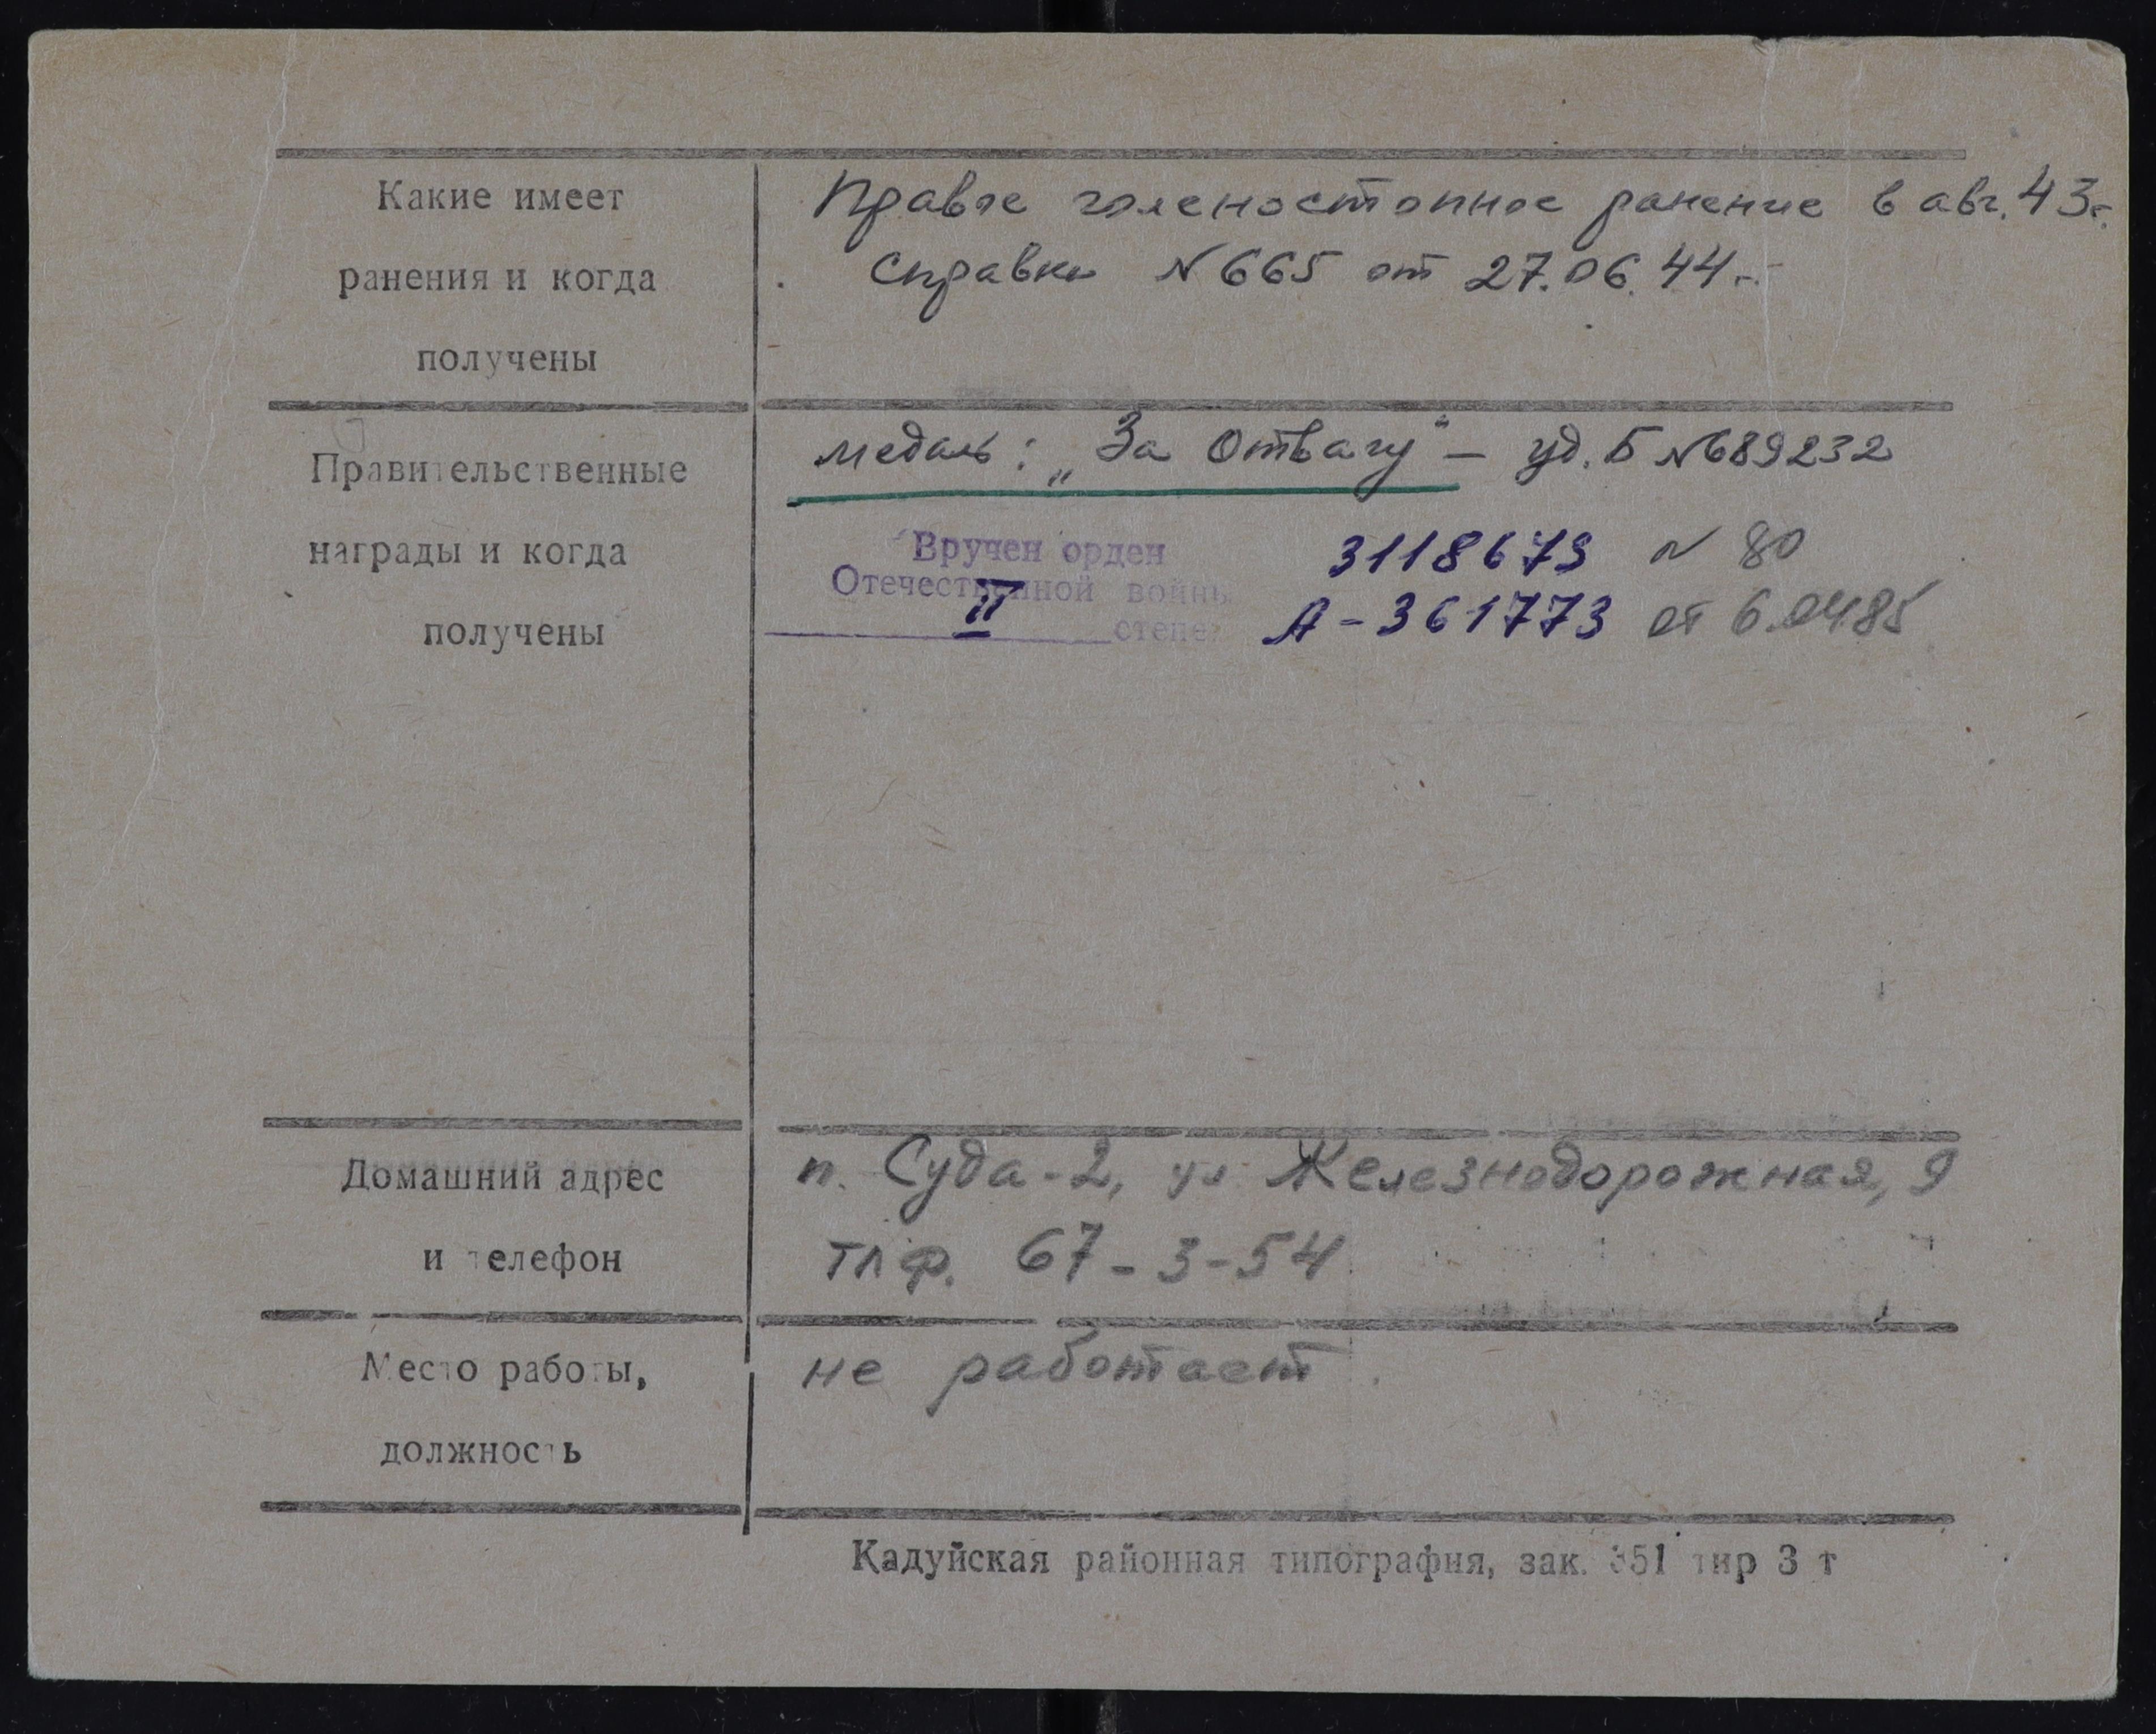 Какие имеет
ранения и когда
получены
Правое голеностопное ранение в авг. 43г.
Справка N 665 от 27.06.44г.
Правительственные
награды и когда
получены
медаль: „За Отвагу" – уд. Б N 689232
Вручен орден 3118679 N 80
Отечественной войны
II степени А-361773 от 6.04.85
Домашний адрес
и телефон
п. Суда-2, ул Железнодорожная, 9
тлф. 67-3-54
Место работы,
должность
не работает.
Кадуйская районная типография, зак. 351 тир 3 т